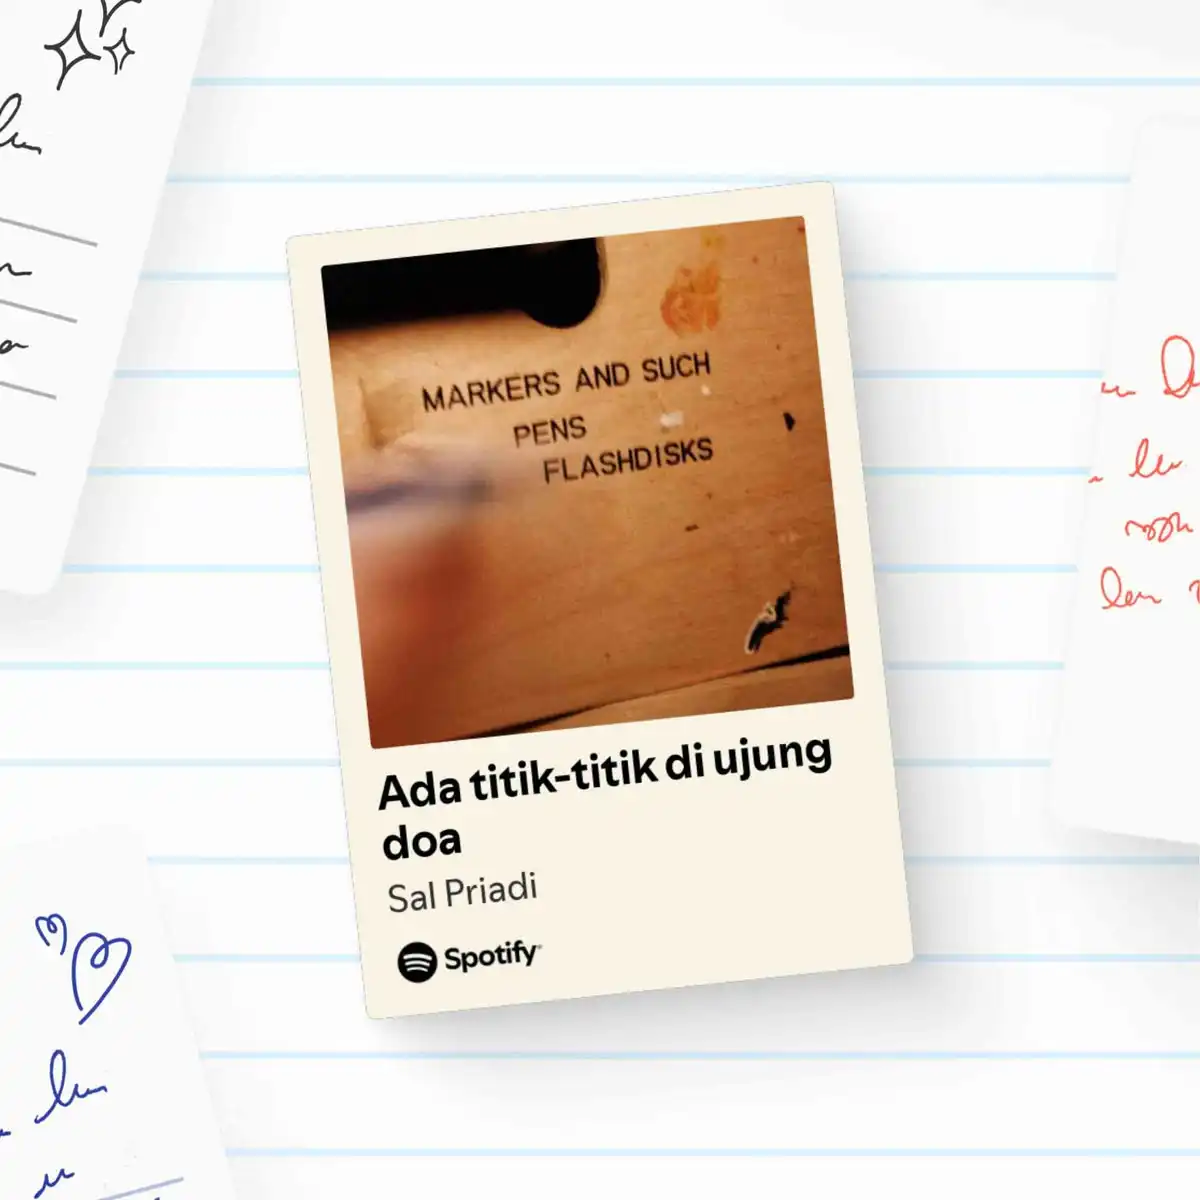 MARKERS AND SUCH
PENS
FLASHDISKS
Ada titik-titik di ujung
doa
Sal Priadi
Spotify